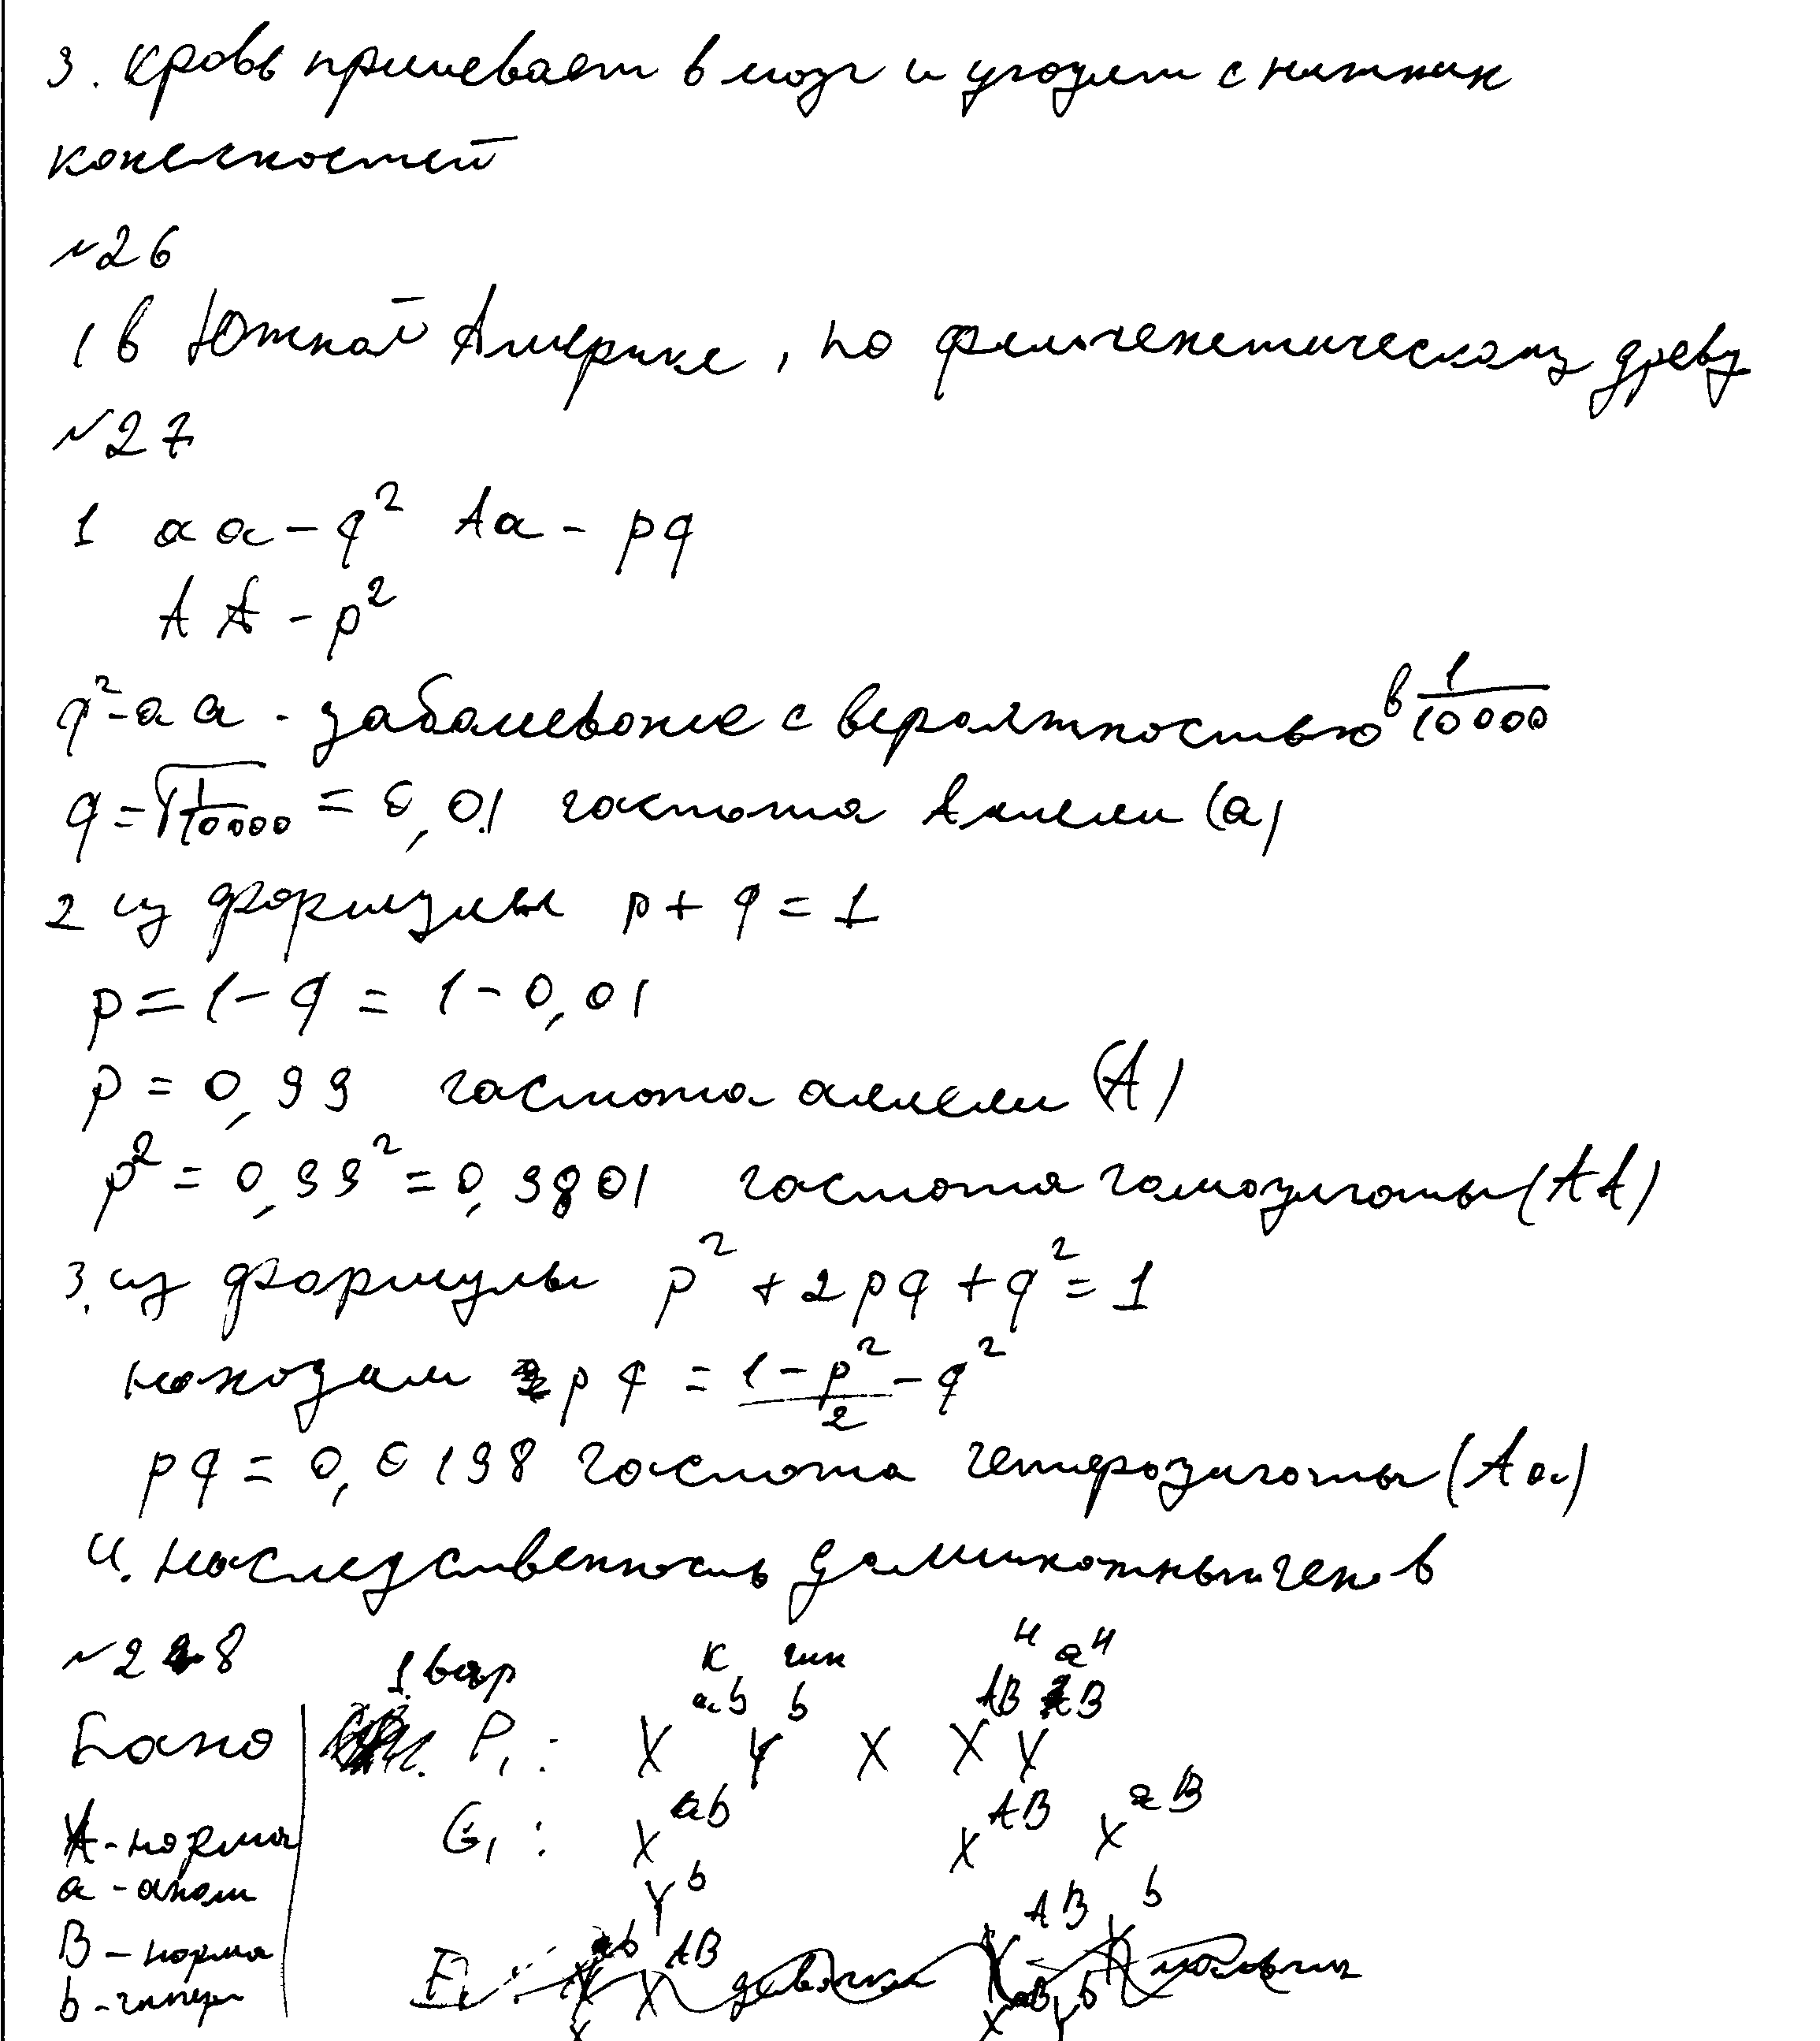 3. Кровь приливает в мозг и уходит с нижних
конечностей
№26
1 в Южной Америке, по филогенетическому древу
№27
1 aa - q² Aa - pq
AA - p²
q² - aa - заболевание с вероятностью в 1/10000
q = √1/10000 = 0,01 частота аллели (a)
2 из формулы p + q = 1
p = 1 - q = 1 - 0,01
p = 0,99 частота аллели (A)
p² = 0,99² = 0,9801 частота гомозиготы (AA)
3. из формулы p² + 2pq + q² = 1
находим pq = 1 - p²/2 - q²
pq = 0,0198 частота гетерозиготы (Aa)
4. наследственность доминантных генов
№28 1.вар к гип н н
Дано P₁: X^ab Y^b X X^AB X^aB
A - норма G₁: X^ab X^AB X^aB
a - аном Y^b
B - норма F₁: X^ab X^AB девочки X^AB Y^b мальчик
b - гипер X X^aB Y^b